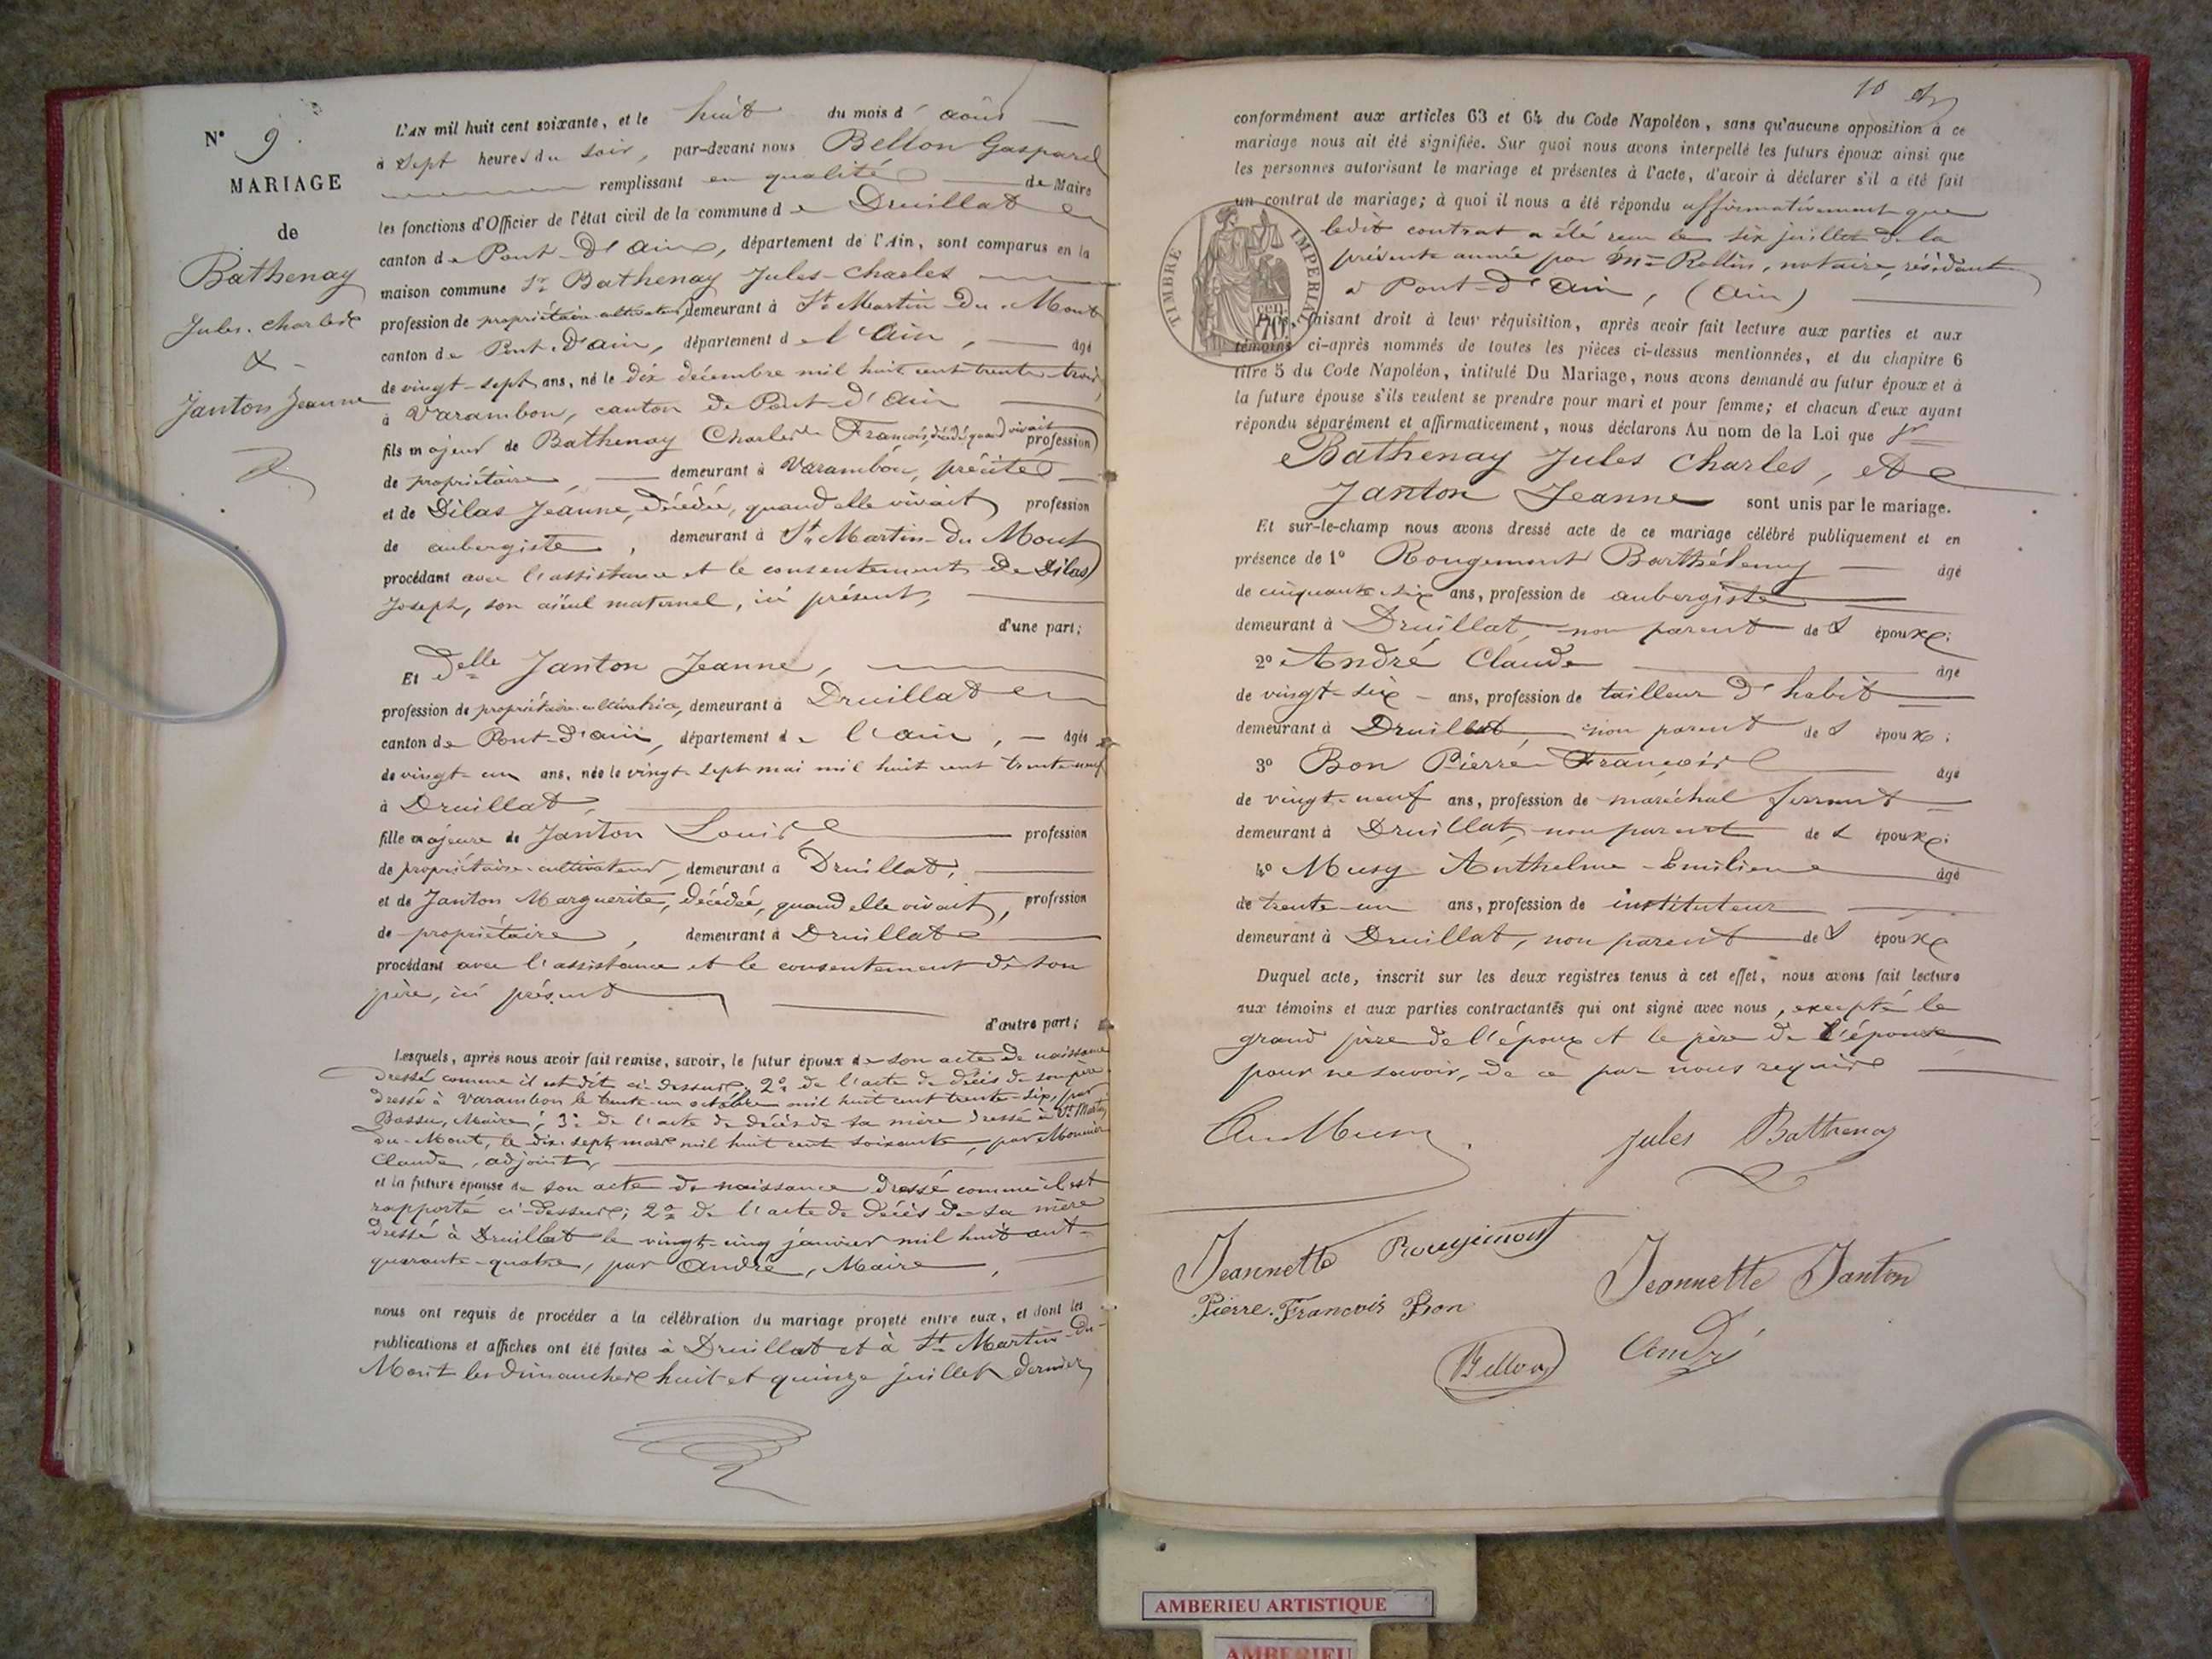 N° 9.
MARIAGE
de
Bathenay
Jules-Charles
&
Janton Jeanne
L'AN mil huit cent soixante, et le huit du mois d'août
à sept heures du soir, par-devant nous Bellon Gaspard
remplissant en qualité de Maire
les fonctions d'Officier de l'état civil de la commune de Druillat
canton de Pont-d'Ain, département de l'Ain, sont comparus en la
maison commune Sr Bathenay Jules-Charles
profession de propriétaire-cultivateur, demeurant à St Martin-du-Mont
canton de Pont-d'ain, département de l'Ain, âgé
de vingt-sept ans, né le dix décembre mil huit cent trente-trois
à Varambon, canton de Pont-d'ain
fils majeur de Bathenay Charles François, décédé, quand vivait profession
de propriétaire, demeurant à Varambon, précité
et de Dilas Jeanne, décédée, quand elle vivait, profession
de aubergiste, demeurant à St Martin-du-Mont
procédant avec l'assistance et le consentement de Dilas
Joseph, son aïeul maternel, ici présent,
d'une part;
Et Delle Janton Jeanne,
profession de propriétaire-cultivatrice, demeurant à Druillat
canton de Pont-d'ain, département de l'ain, âgée
de vingt-un ans, née le vingt-sept mai mil huit cent trente-neuf
à Druillat,
fille majeure de Janton Louis profession
de propriétaire-cultivateur, demeurant à Druillat,
et de Janton Marguerite, décédée, quand elle vivait, profession
de propriétaire, demeurant à Druillat
procédant avec l'assistance et le consentement de son
père, ici présent
d'autre part;
Lesquels, après nous avoir fait remise, savoir, le futur époux de son acte de naissance
dressé comme il est dit ci-dessus; 2° de l'acte de décès de son père
dressé à Varambon le trente-un octobre mil huit cent trente-six, par
Bossu, Maire; 3° de l'acte de décès de sa mère dressé à St Martin
du-Mont, le dix-sept mars mil huit cent soixante, par Monnier
Claude, adjoint,
et la future épouse de son acte de naissance dressé comme il est
rapporté ci-dessus; 2° de l'acte de décès de sa mère
dressé à Druillat le vingt-cinq janvier mil huit cent
quarante-quatre, par André, Maire,
nous ont requis de procéder à la célébration du mariage projeté entre eux, et dont les
publications et affiches ont été faites à Druillat et à St Martin-du-
Mont les dimanches huit et quinze juillet dernier
10
conformément aux articles 63 et 64 du Code Napoléon, sans qu'aucune opposition à ce
mariage nous ait été signifiée. Sur quoi nous avons interpellé les futurs époux ainsi que
les personnes autorisant le mariage et présentes à l'acte, d'avoir à déclarer s'il a été fait
un contrat de mariage; à quoi il nous a été répondu affirmativement que
ledit contrat a été reçu le six juillet de la
présente année par Me Rollin, notaire, résidant
à Pont-d'Ain, (Ain)
TIMBRE IMPERIAL
70 cen
faisant droit à leur réquisition, après avoir fait lecture aux parties et aux
témoins ci-après nommés de toutes les pièces ci-dessus mentionnées, et du chapitre 6
titre 5 du Code Napoléon, intitulé Du Mariage, nous avons demandé au futur époux et à
la future épouse s'ils veulent se prendre pour mari et pour femme; et chacun d'eux ayant
répondu séparément et affirmativement, nous déclarons Au nom de la Loi que Sr
Bathenay Jules Charles, et
Janton Jeanne sont unis par le mariage.
Et sur-le-champ nous avons dressé acte de ce mariage célébré publiquement et en
présence de 1° Rougemont Barthélemy âgé
de cinquante-six ans, profession de aubergiste
demeurant à Druillat, non parent des époux;
2° André Claude âgé
de vingt-six ans, profession de tailleur d'habit
demeurant à Druillat, non parent des époux;
3° Bon Pierre-François âgé
de vingt-neuf ans, profession de maréchal ferrant
demeurant à Druillat, non parent des époux;
4° Musy Anthelme-Emilien âgé
de trente-un ans, profession de instituteur
demeurant à Druillat, non parent des époux
Duquel acte, inscrit sur les deux registres tenus à cet effet, nous avons fait lecture
aux témoins et aux parties contractantes qui ont signé avec nous, excepté le
grand père de l'époux et le père de l'épouse
pour ne savoir, de ce par nous requis
Jules Bathenay
Jeannette Rougemont
Jeannette Janton
Pierre-François Bon
Bellon
André
AMBERIEU ARTISTIQUE
AMBERIEU